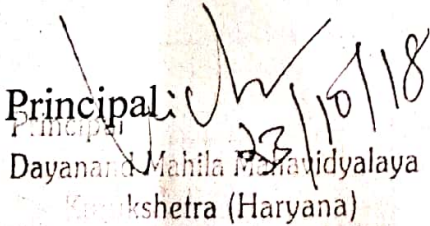 Principal:
23/10/18
Principal
Dayanand Mahila Mahavidyalaya
Kurukshetra (Haryana)